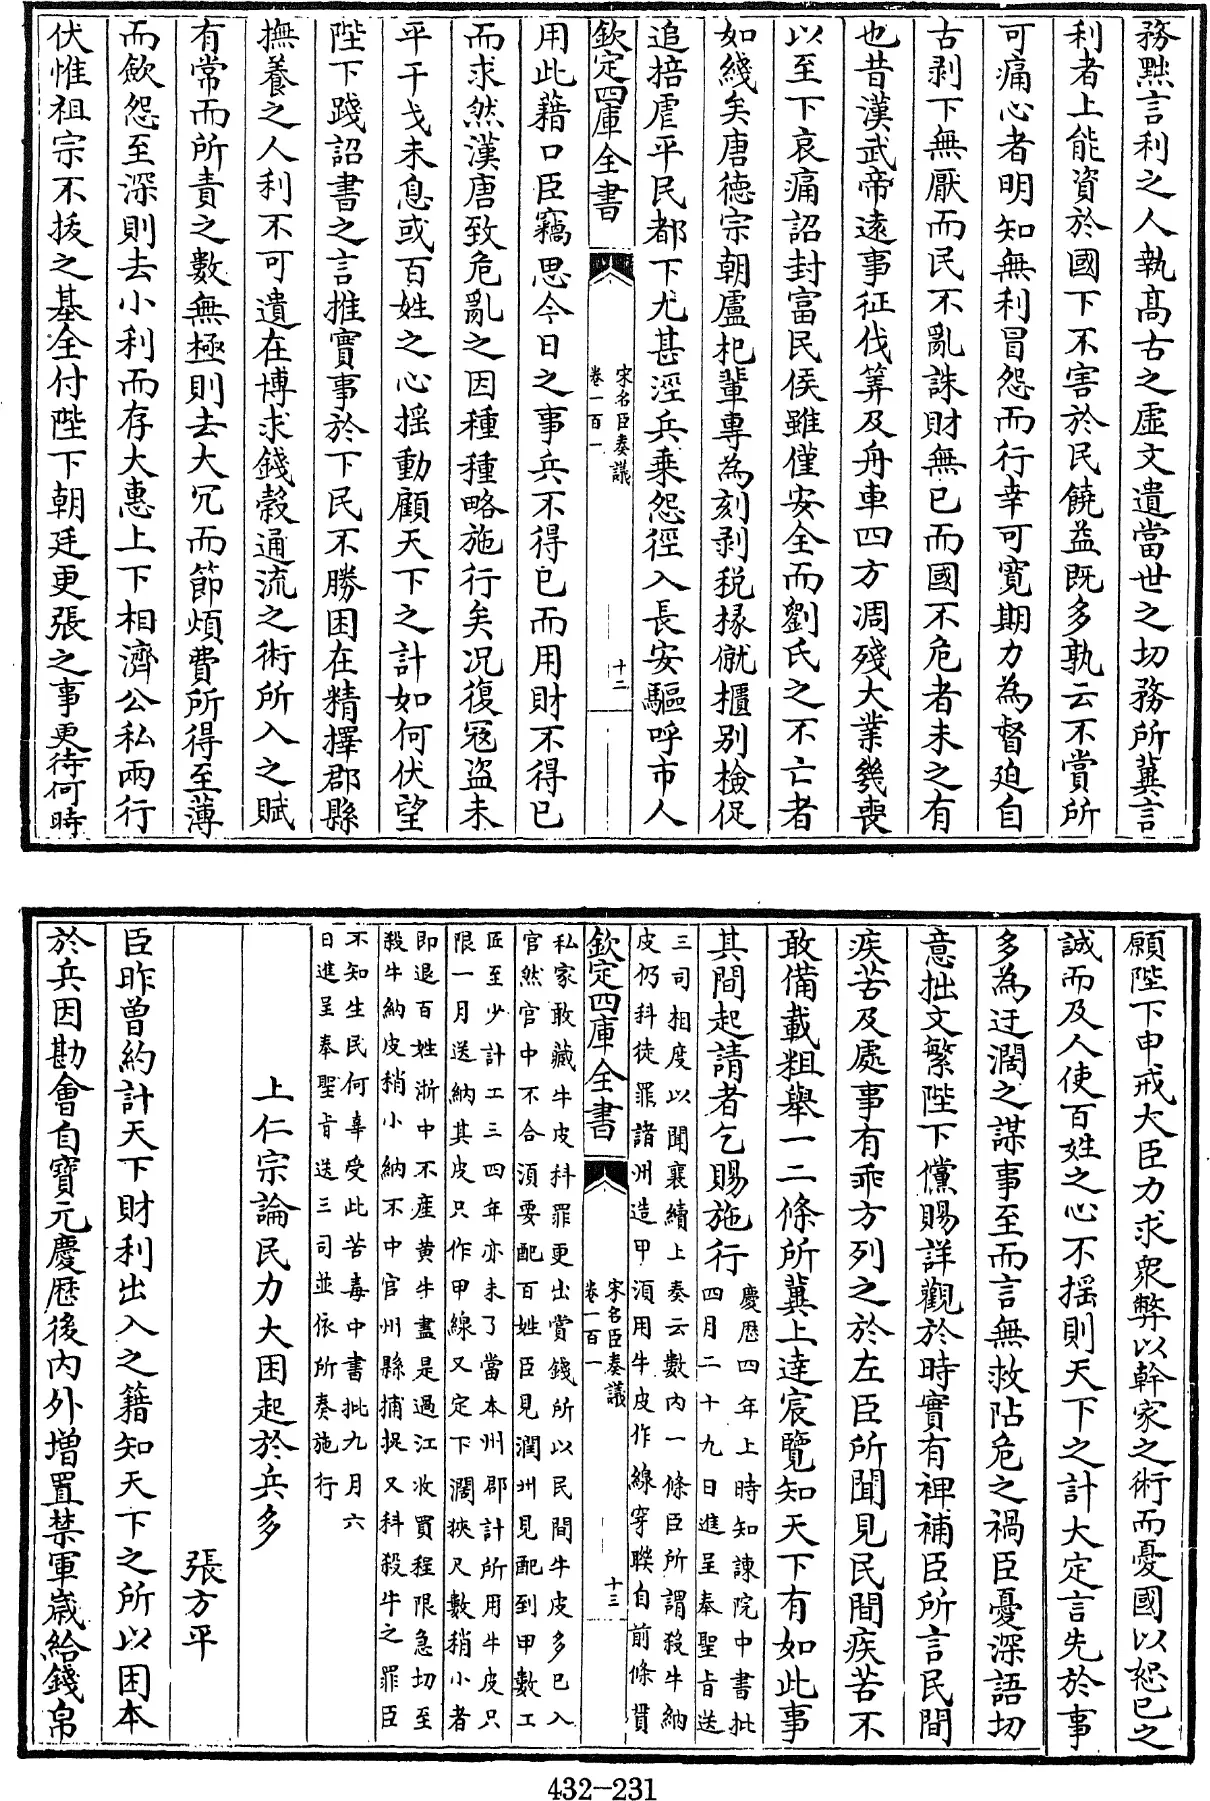 務黙言利之人執髙古之虛文遺當世之切務所冀言
利者上能資於國下不害於民饒益既多孰云不賞所
可痛心者明知無利冒怨而行幸可寛期力為督迫自
古剥下無厭而民不亂誅財無已而國不危者未之有
也昔漢武帝逺事征伐筭及舟車四方凋殘大業幾喪
以至下哀痛詔封富民侯雖僅安全而劉氏之不亡者
如綫矣唐徳宗朝盧杞輩專為刻剥税椽僦櫃别檢促
追掊虐平民都下尤甚涇兵乗怨徑入長安驅呼市人
欽定四庫全書
宋名臣奏議
卷一百一
十二
用此藉口臣竊思今日之事兵不得已而用財不得已
而求然漢唐致危亂之因種種略施行矣况復冦盗未
平干戈未息或百姓之心揺動顧天下之計如何伏望
陛下踐詔書之言推實事於下民不勝困在精擇郡縣
撫養之人利不可遺在博求錢榖通流之術所入之賦
有常而所責之數無極則去大冗而節煩費所得至薄
而歛怨至深則去小利而存大惠上下相濟公私兩行
伏惟祖宗不拔之基全付陛下朝廷更張之事更待何時
願陛下申戒大臣力求衆弊以幹家之術而憂國以恕已之
誠而及人使百姓之心不揺則天下之計大定言先於事
多為迂濶之謀事至而言無救阽危之禍臣憂深語切
意拙文繁陛下儻賜詳觀於時實有裨補臣所言民間
疾苦及處事有乖方列之於左臣所聞見民間疾苦不
敢備載粗舉一二條所冀上達宸覽知天下有如此事
其間起請者乞賜施行慶厯四年上時知諫院中書批
四月二十九日進呈奉聖旨送
三司相度以聞襄續上奏云數内一條臣所謂殺牛納
皮仍科徒罪諸州造甲湏用牛皮作線穿聨自前條貫
欽定四庫全書
宋名臣奏議
卷一百一
十三
私家敢藏牛皮科罪更出賞錢所以民間牛皮多已入
官然官中不合湏要配百姓臣見潤州見配到甲數工
匠至少計工三四年亦未了當本州郡計所用牛皮只
限一月送納其皮只作甲線又定下濶狹尺數稍小者
即退百姓浙中不産黄牛盡是過江收買程限急切至
殺牛納皮稍小納不中官州縣捕捉又科殺牛之罪臣
不知生民何辜受此苦毒中書批九月六
日進呈奉聖旨送三司並依所奏施行
上仁宗論民力大困起於兵多
張方平
臣昨曽約計天下財利出入之籍知天下之所以困本
於兵因勘會自寳元慶厯後内外増置禁軍嵗給錢帛
432-231